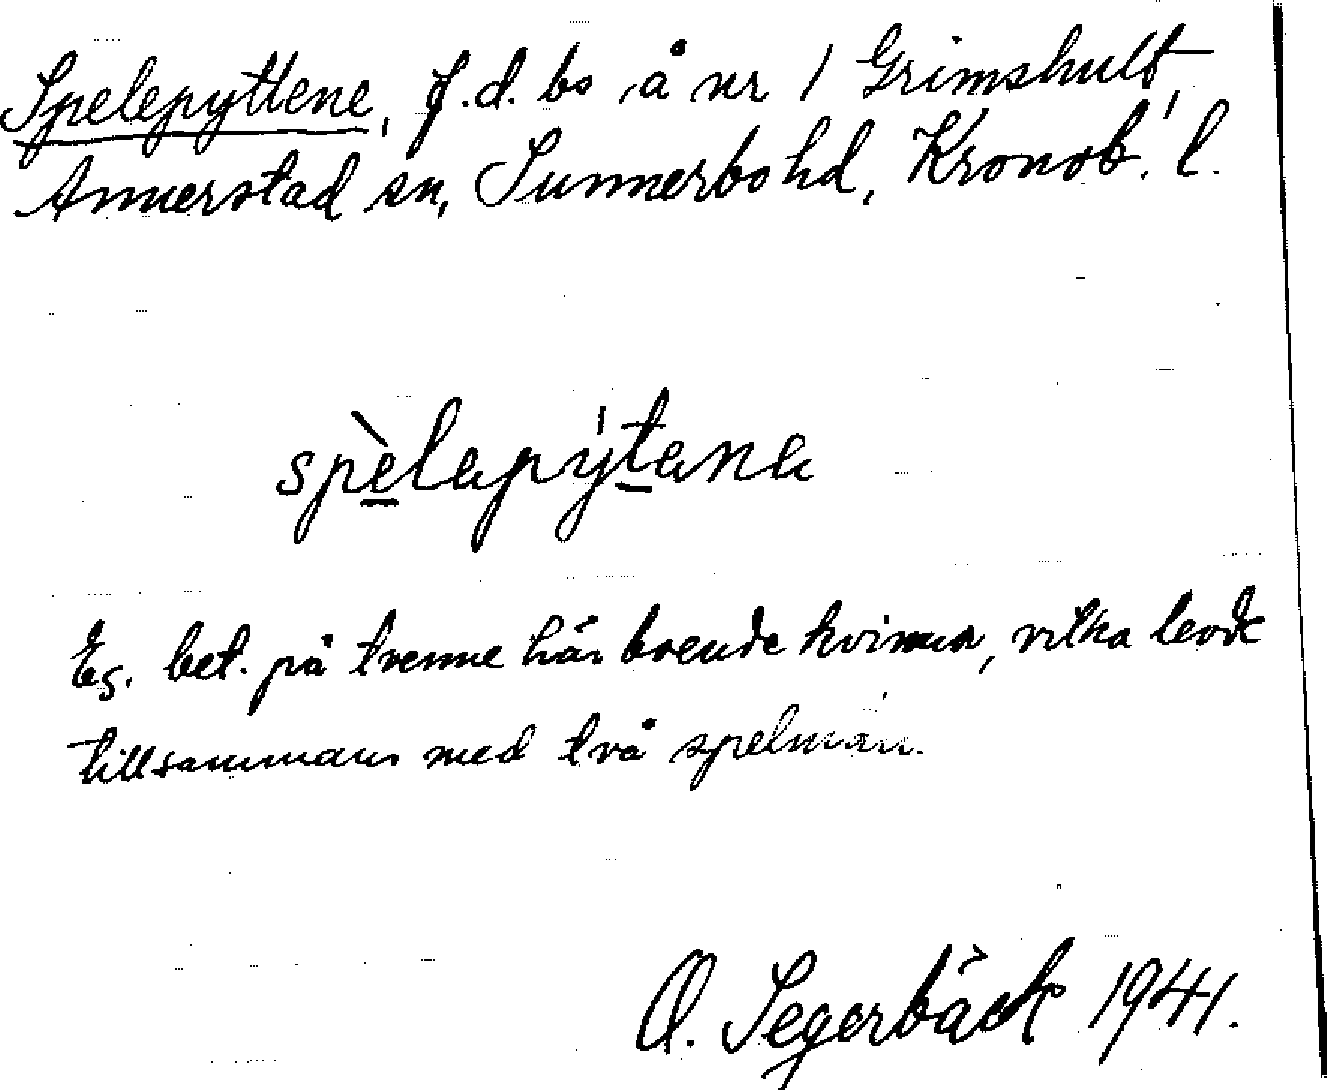 Spelepyttene, f.d. bo å nr 1 Grimshult,
Annerstad sn, Sunnerbo hd, Kronob. l.
spèlapýtana
Eg. bet. på trenne här boende kvinnor, vilka levde
tillsammans med två spelmän.
O. Segerbäck 1941.